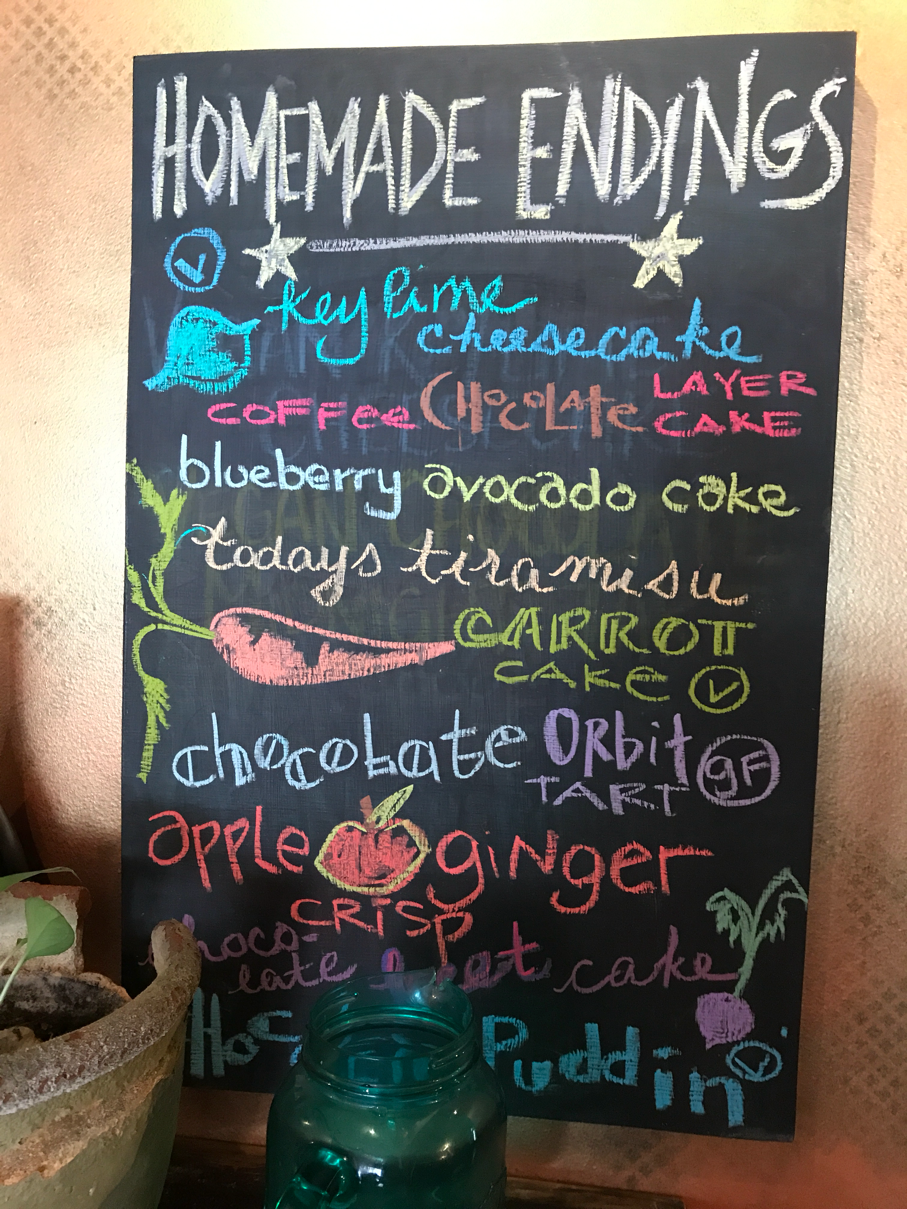 HOMEMADE ENDINGS
V
key lime
cheesecake
COFFee CHOCOLATE LAYER
CAKE
blueberry avocado cake
todays tiramisu
CARROT
CAKE V
chocolate ORbit
TART gF
apple giNger
CRISP
choco-
late beet cake
Puddin'
V